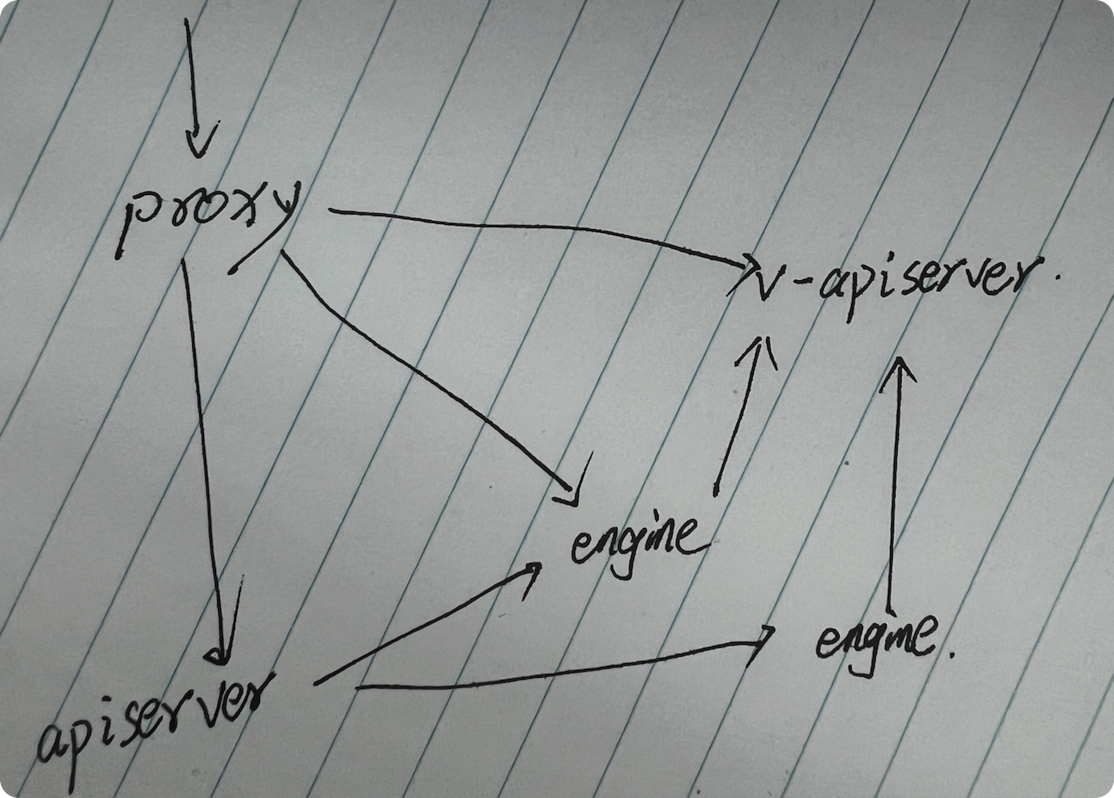 proxy
v-apiserver.
engine
engine.
apiserver